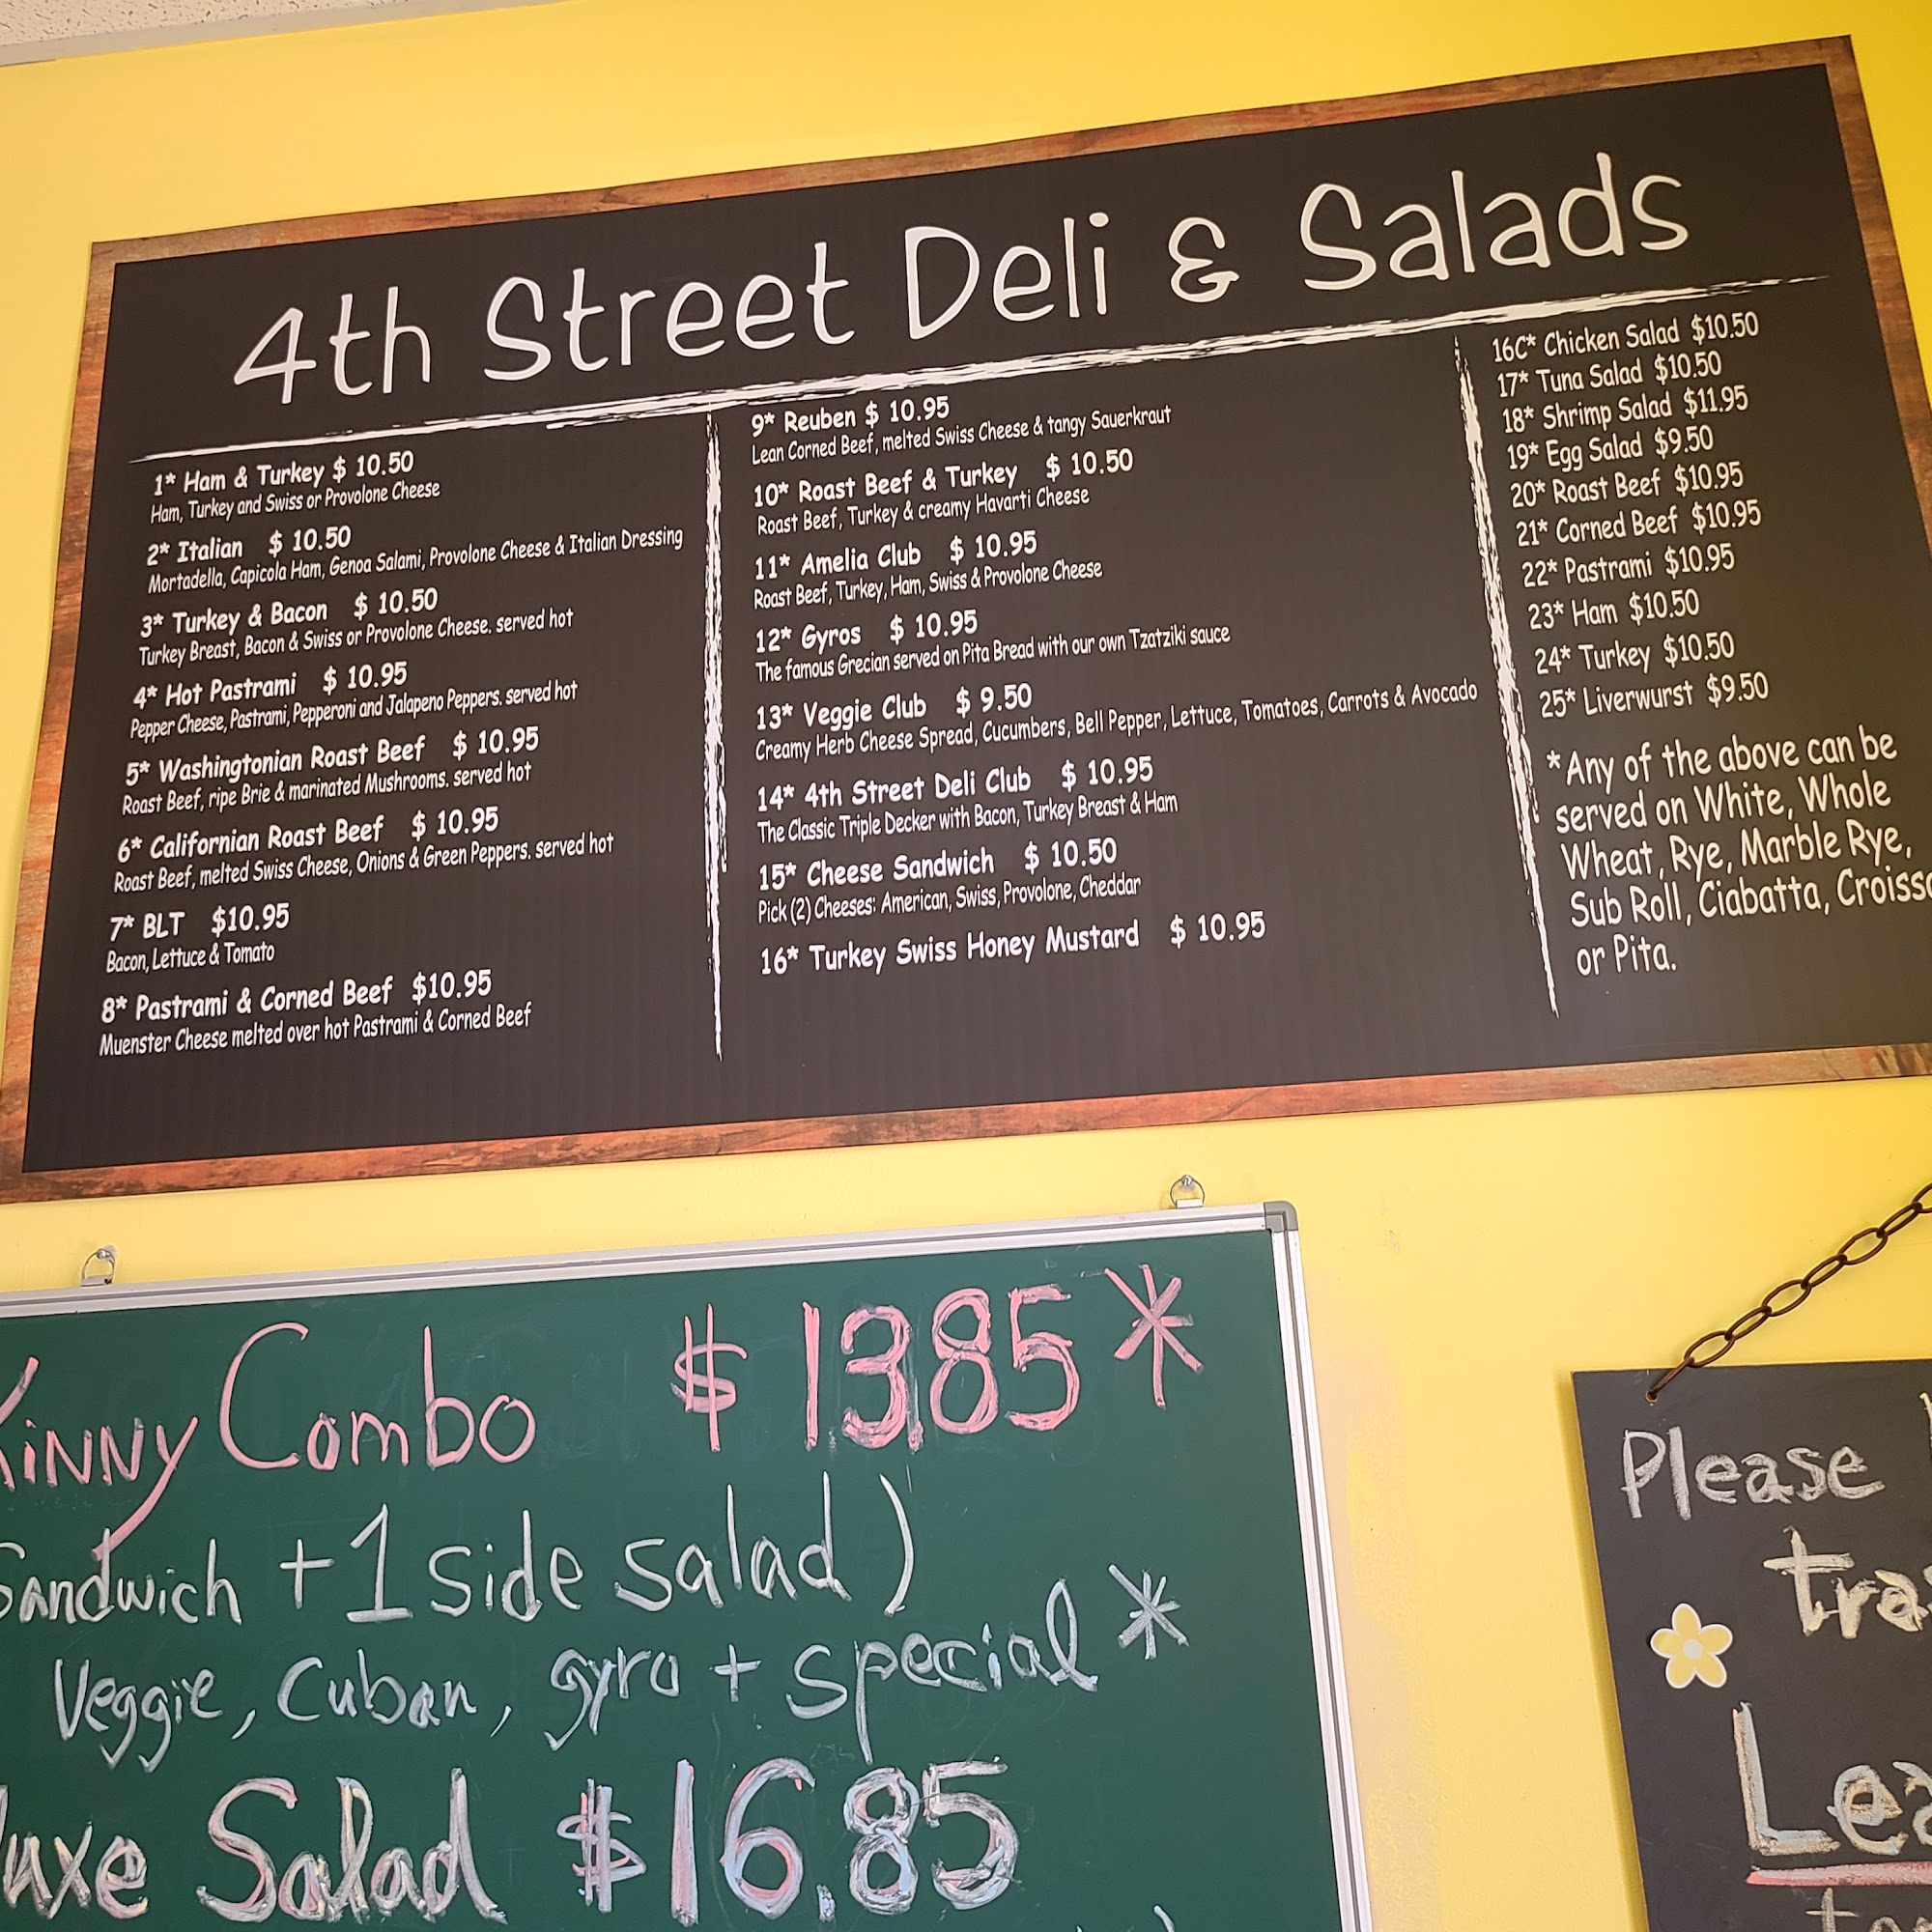 4th Street Deli & Salads
1* Ham & Turkey $ 10.50
Ham, Turkey and Swiss or Provolone Cheese
2* Italian $ 10.50
Mortadella, Capicola Ham, Genoa Salami, Provolone Cheese & Italian Dressing
3* Turkey & Bacon $ 10.50
Turkey Breast, Bacon & Swiss or Provolone Cheese. served hot
4* Hot Pastrami $ 10.95
Pepper Cheese, Pastrami, Pepperoni and Jalapeno Peppers. served hot
5* Washingtonian Roast Beef $ 10.95
Roast Beef, ripe Brie & marinated Mushrooms. served hot
6* Californian Roast Beef $ 10.95
Roast Beef, melted Swiss Cheese, Onions & Green Peppers. served hot
7* BLT $10.95
Bacon, Lettuce & Tomato
8* Pastrami & Corned Beef $10.95
Muenster Cheese melted over hot Pastrami & Corned Beef
9* Reuben $ 10.95
Lean Corned Beef, melted Swiss Cheese & tangy Sauerkraut
10* Roast Beef & Turkey $ 10.50
Roast Beef, Turkey & creamy Havarti Cheese
11* Amelia Club $ 10.95
Roast Beef, Turkey, Ham, Swiss & Provolone Cheese
12* Gyros $ 10.95
The famous Grecian served on Pita Bread with our own Tzatziki sauce
13* Veggie Club $ 9.50
Creamy Herb Cheese Spread, Cucumbers, Bell Pepper, Lettuce, Tomatoes, Carrots & Avocado
14* 4th Street Deli Club $ 10.95
The Classic Triple Decker with Bacon, Turkey Breast & Ham
15* Cheese Sandwich $ 10.50
Pick (2) Cheeses: American, Swiss, Provolone, Cheddar
16* Turkey Swiss Honey Mustard $ 10.95
16C* Chicken Salad $10.50
17* Tuna Salad $10.50
18* Shrimp Salad $11.95
19* Egg Salad $9.50
20* Roast Beef $10.95
21* Corned Beef $10.95
22* Pastrami $10.95
23* Ham $10.50
24* Turkey $10.50
25* Liverwurst $9.50
*Any of the above can be
served on White, Whole
Wheat, Rye, Marble Rye,
Sub Roll, Ciabatta,
or Pita.
Combo $ 13.85*
Sandwich + 1 side salad)
Veggie, Cuban, gyro + special *
Salad $16.85
Please